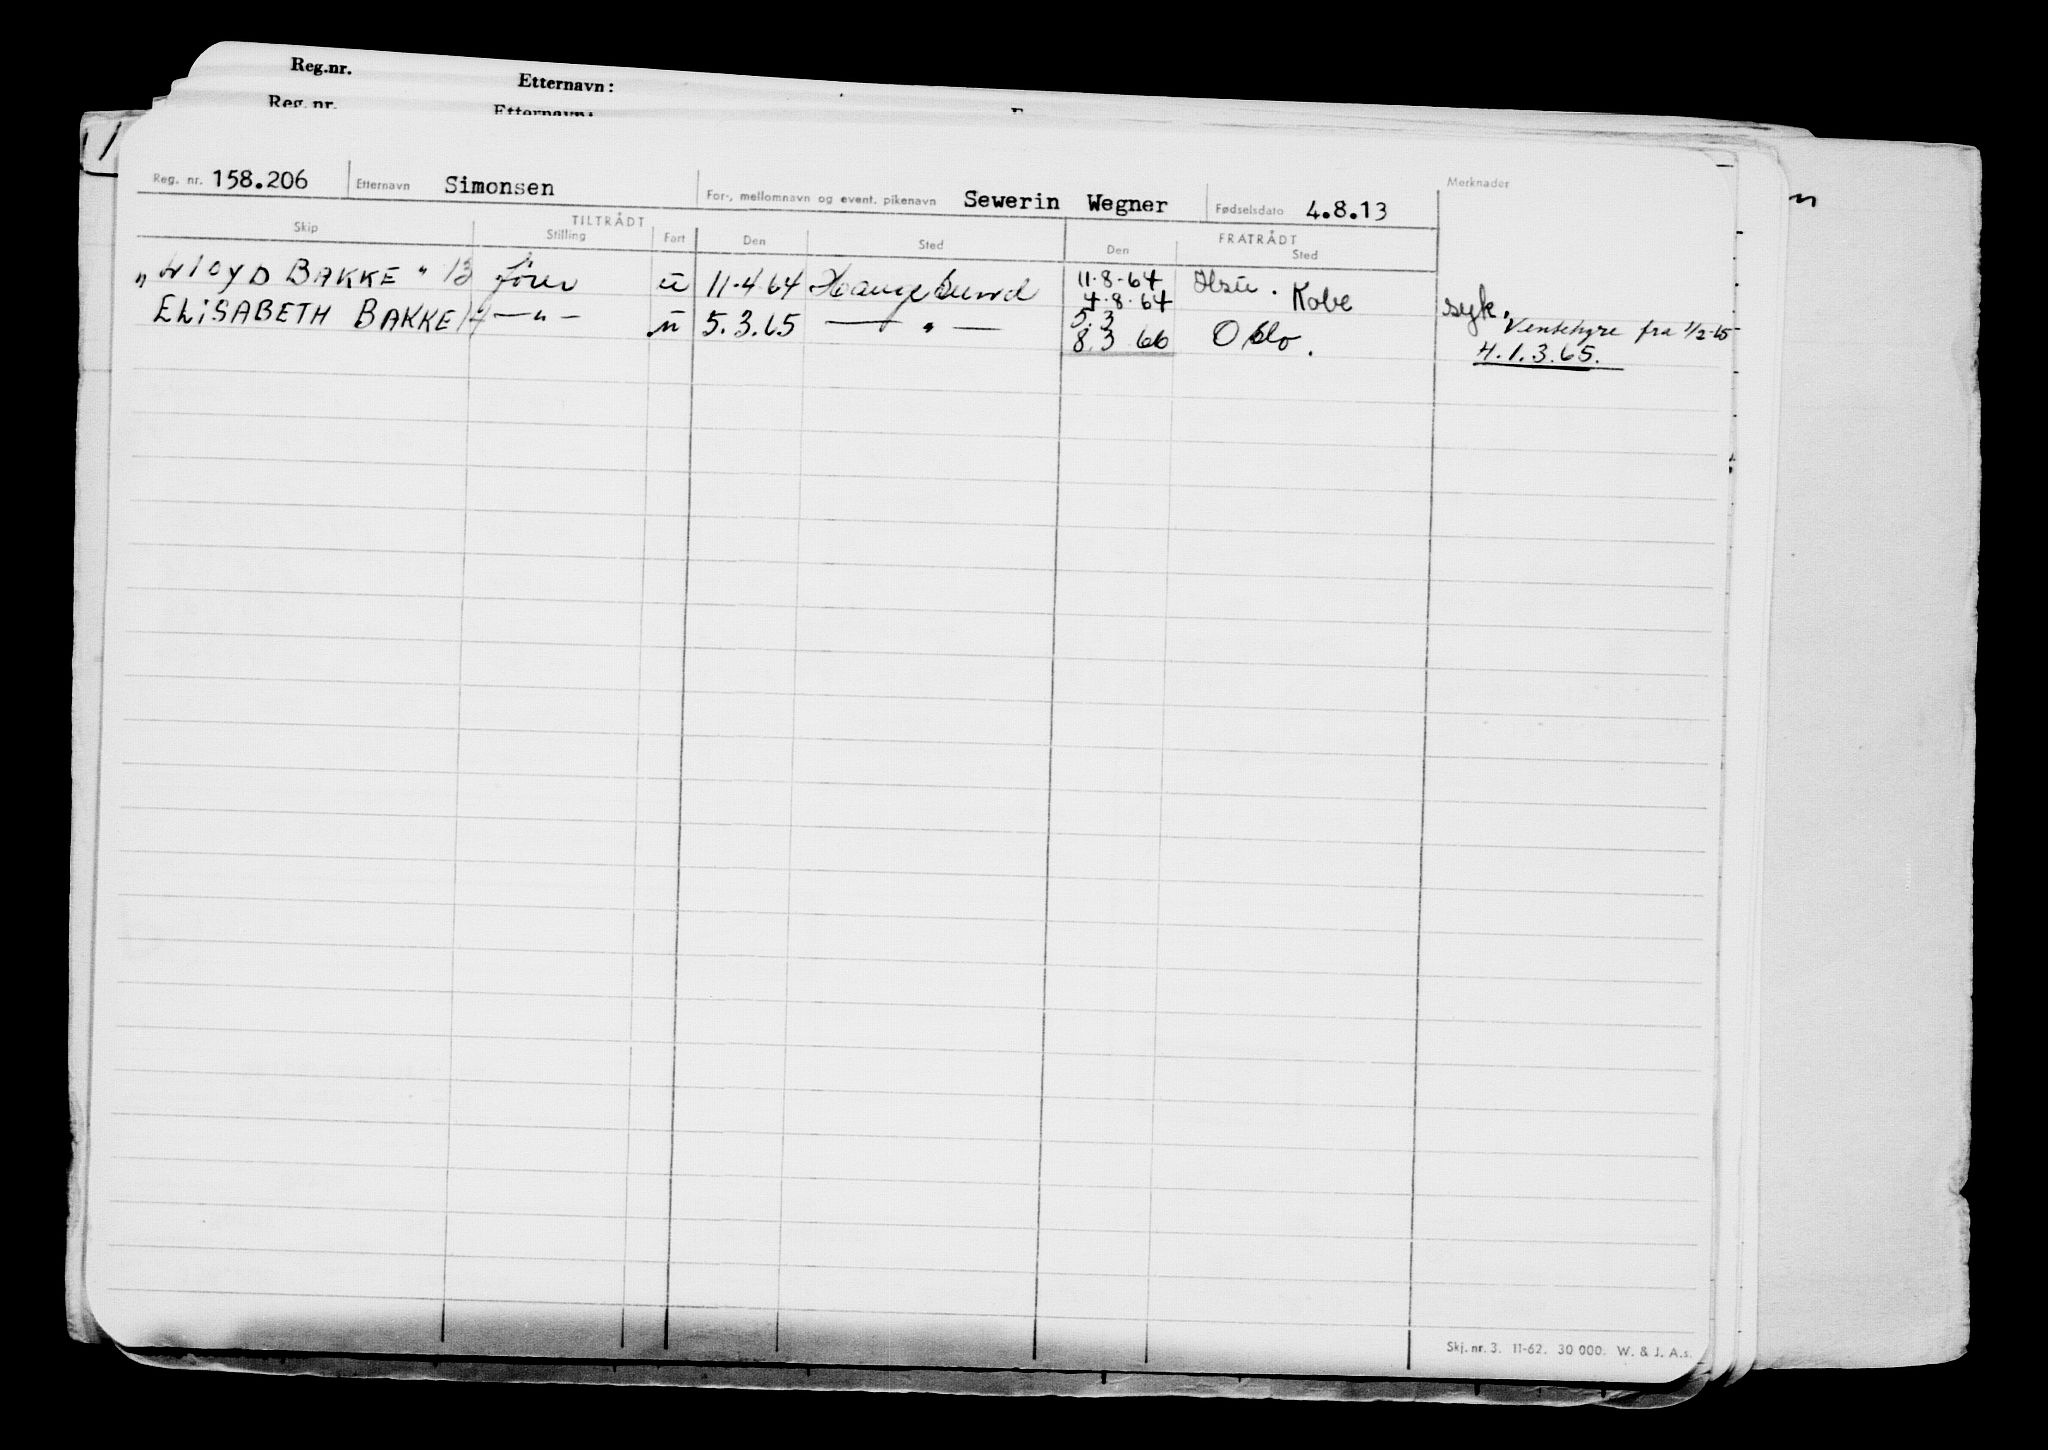 Reg.nr. Etternavn:
Reg. nr. Etternavn:
Reg. nr. 158.206 Etternavn Simonsen For-, mellomnavn og event. pikenavn Sewerin Wegner Fødselsdato 4.8.13 Merknader
TILTRÅDT FRATRÅDT
Skip Stilling Fart Den Sted Den Sted
"LLOYD BAKKE" fører u 11.4.64 Haugesund 11.8.64
4.8.64 Kobe syk.
ELISABETH BAKKE — " — u 5.3.65 — " — 5.3
8.3 66 Oslo. Ventehyre fra 1/2-65
4.1.3.65.
Skj. nr. 3. 11-62. 30 000. W. & J. A.s.